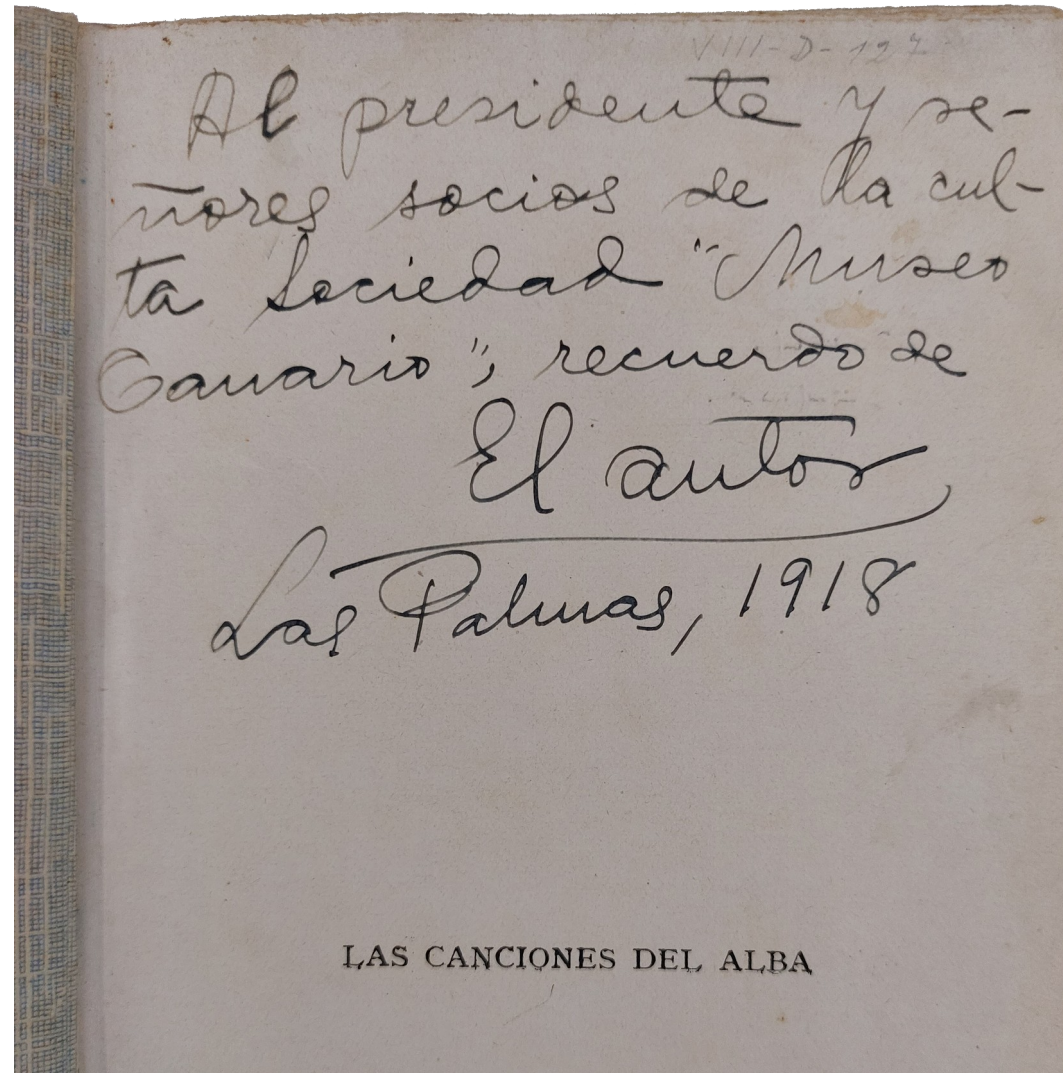 VIII-D-127
Al presidente y se-
ñores socios de la cul-
ta Sociedad "Museo
Canario", recuerdo de
El autor
Las Palmas, 1918
LAS CANCIONES DEL ALBA